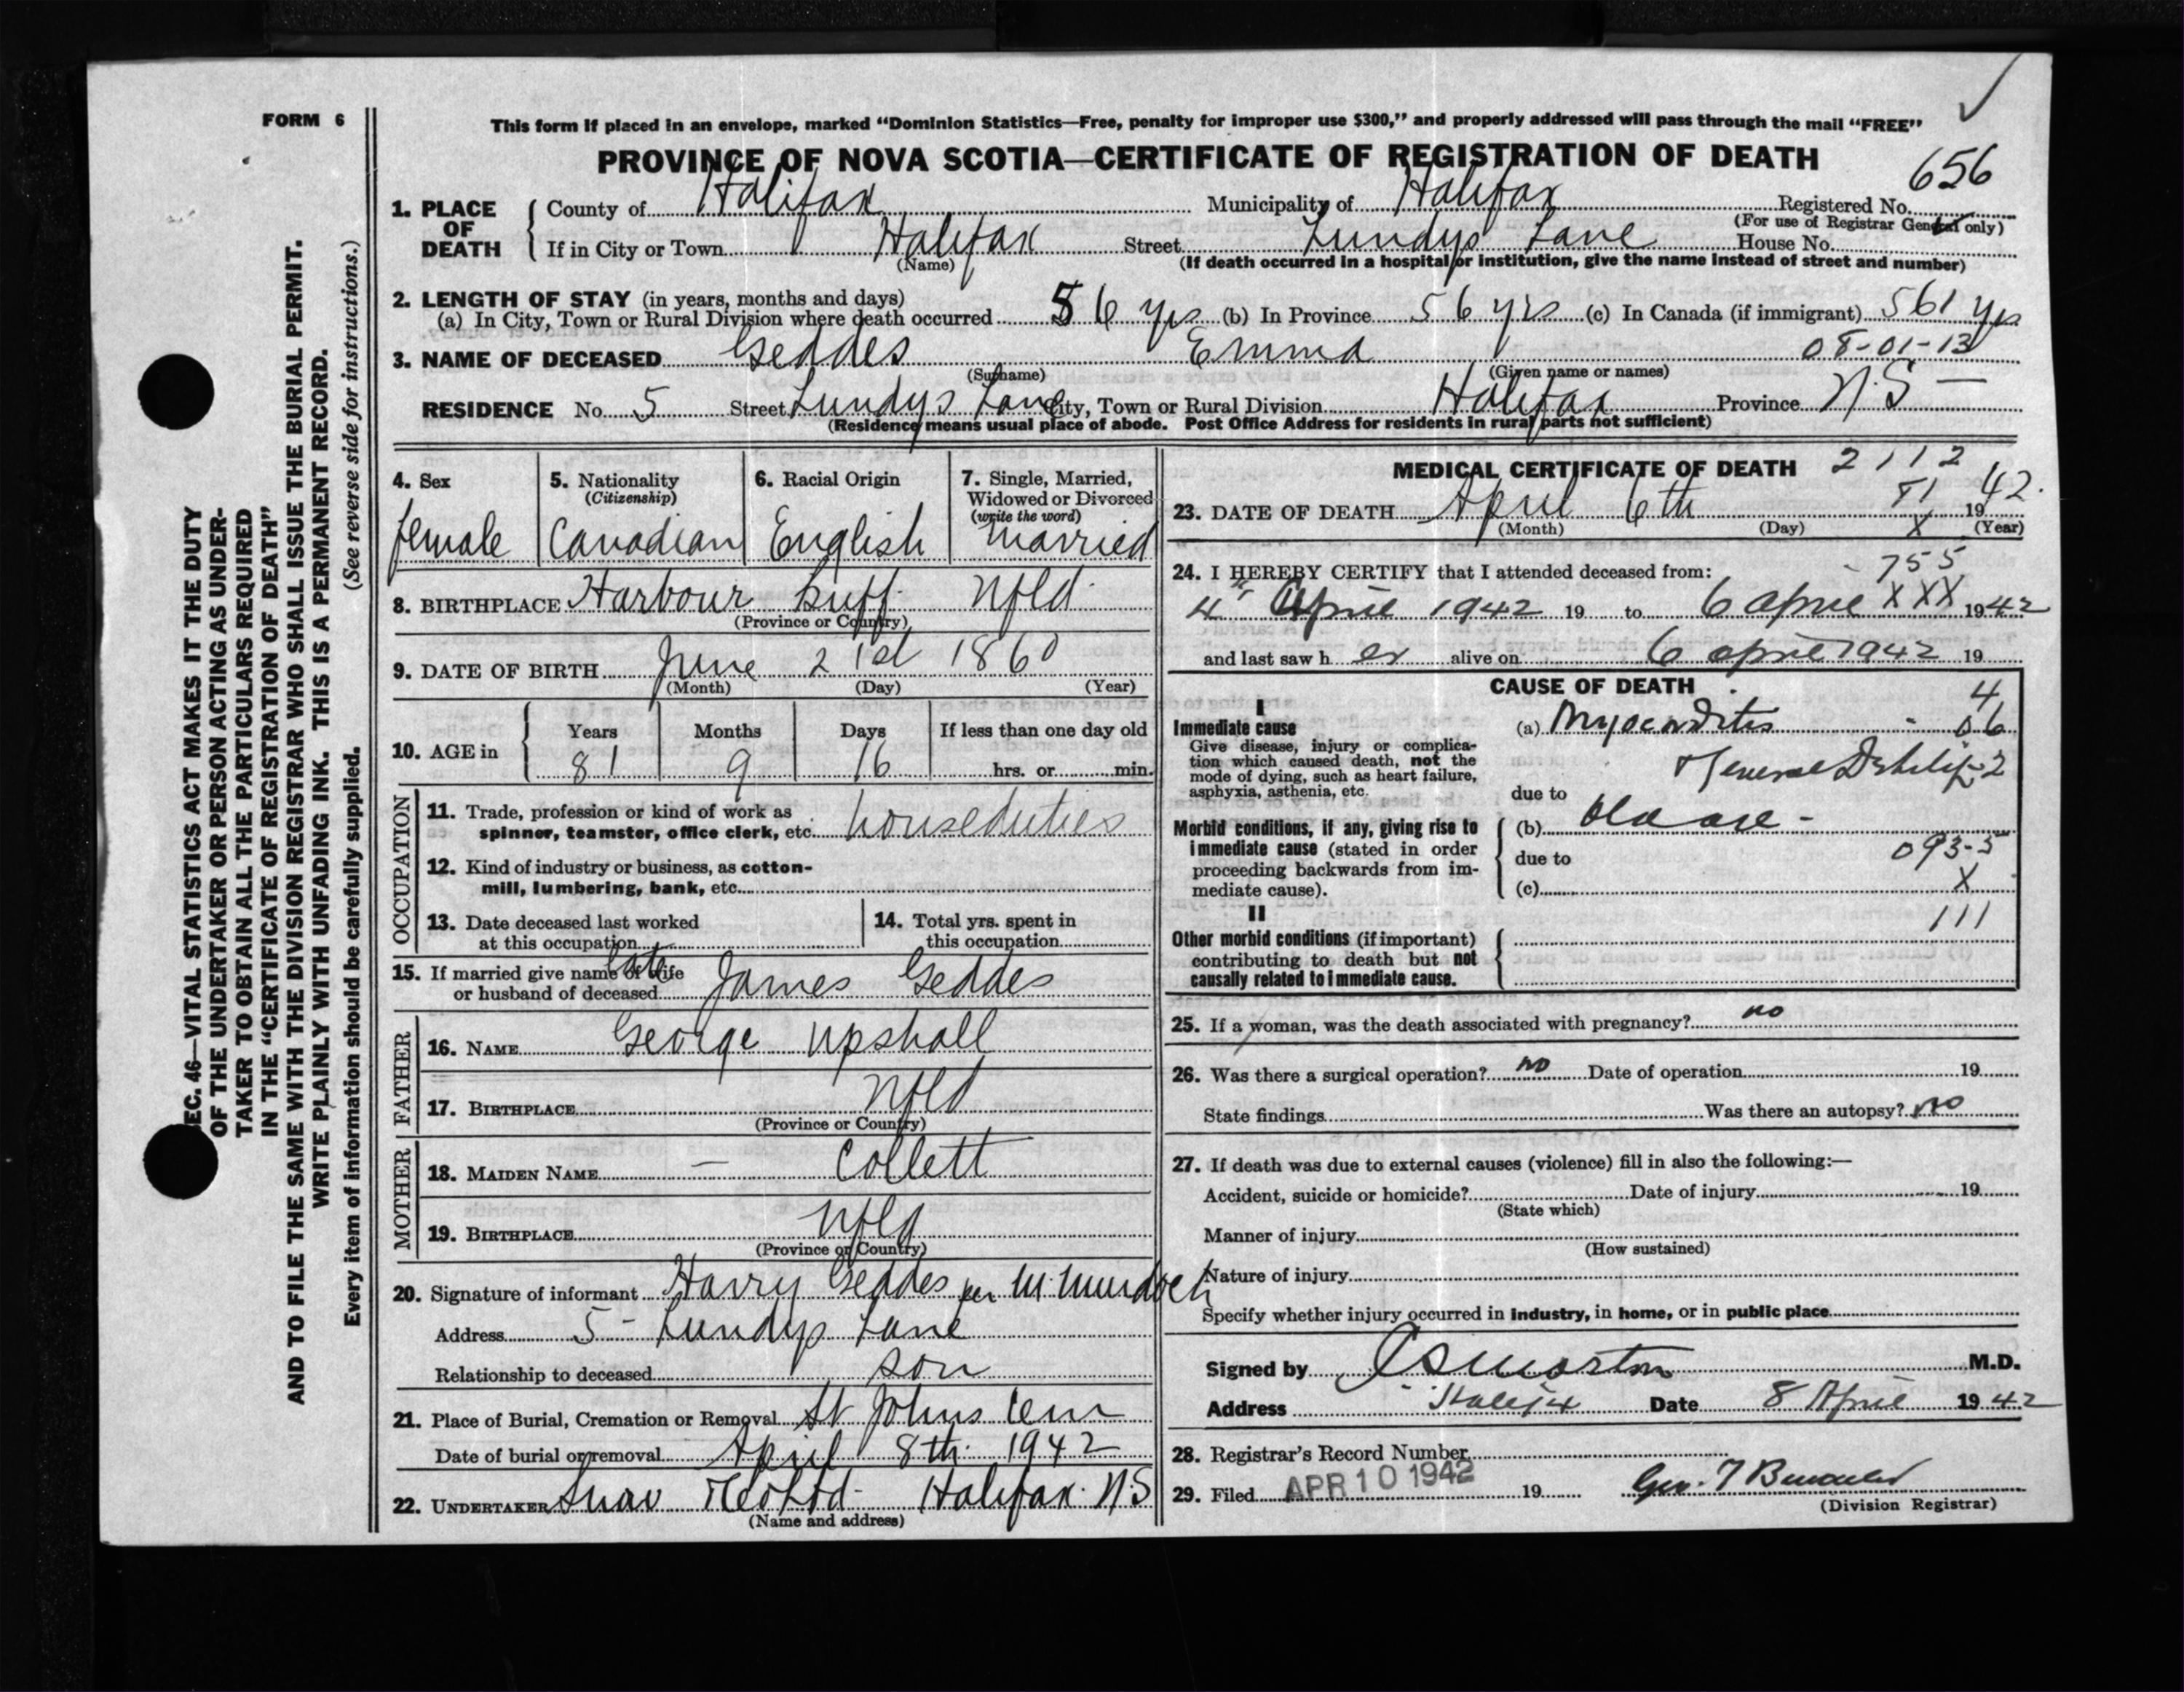 FORM 6
This form if placed in an envelope, marked “Dominion Statistics—Free, penalty for improper use $300,” and properly addressed will pass through the mail “FREE”
PROVINCE OF NOVA SCOTIA—CERTIFICATE OF REGISTRATION OF DEATH
656
1. PLACE OF DEATH County of Halifax Municipality of Halifax Registered No.
(For use of Registrar General only)
If in City or Town Halifax Street Lundys Lane House No.
(Name) (If death occurred in a hospital or institution, give the name instead of street and number)
2. LENGTH OF STAY (in years, months and days)
(a) In City, Town or Rural Division where death occurred 56 yrs (b) In Province 56 yrs (c) In Canada (if immigrant) 561 yrs
08-01-13
3. NAME OF DECEASED Geddes Emma
(Surname) (Given name or names)
RESIDENCE No. 5 Street Lundys Lane City, Town or Rural Division Halifax Province N.S —
(Residence means usual place of abode. Post Office Address for residents in rural parts not sufficient)
4. Sex
female
5. Nationality
(Citizenship)
Canadian
6. Racial Origin
English
7. Single, Married,
Widowed or Divorced
(write the word)
Married
8. BIRTHPLACE Harbour Buff Nfld
(Province or Country)
9. DATE OF BIRTH June 21st 1860
(Month) (Day) (Year)
10. AGE in
Years Months Days If less than one day old
81 9 16 hrs. or min.
OCCUPATION
11. Trade, profession or kind of work as
spinner, teamster, office clerk, etc. houseduties
12. Kind of industry or business, as cotton-
mill, lumbering, bank, etc.
13. Date deceased last worked
at this occupation
14. Total yrs. spent in
this occupation
15. If married give name of wife
or husband of deceased late James Geddes
FATHER
16. NAME George Upshall
17. BIRTHPLACE Nfld
(Province or Country)
MOTHER
18. MAIDEN NAME — Collett
19. BIRTHPLACE Nfld
(Province or Country)
20. Signature of informant Harry Geddes per M Murdoch
Address 5 - Lundys Lane
Relationship to deceased son
21. Place of Burial, Cremation or Removal St Johns Cem
Date of burial or removal April 8th 1942
22. UNDERTAKER Snow & Co Ltd - Halifax. N.S
(Name and address)
MEDICAL CERTIFICATE OF DEATH 2112
23. DATE OF DEATH April 6th 1942.
(Month) (Day) (Year)
X
755
24. I HEREBY CERTIFY that I attended deceased from:
4th April 1942 19 to 6 April XXX 1942
and last saw her alive on 6 April 1942 19
CAUSE OF DEATH
4
I
Immediate cause
Give disease, injury or complica-
tion which caused death, not the
mode of dying, such as heart failure,
asphyxia, asthenia, etc.
(a) Myocarditis 06
& General Debility 2
due to
Morbid conditions, if any, giving rise to
immediate cause (stated in order
proceeding backwards from im-
mediate cause).
(b) Old age -
due to 093-5
(c) X
111
II
Other morbid conditions (if important)
contributing to death but not
causally related to immediate cause.
25. If a woman, was the death associated with pregnancy? no
26. Was there a surgical operation? no Date of operation 19
State findings Was there an autopsy? no
27. If death was due to external causes (violence) fill in also the following:—
Accident, suicide or homicide? Date of injury 19
(State which)
Manner of injury
(How sustained)
Nature of injury
Specify whether injury occurred in industry, in home, or in public place
Signed by Morton M.D.
Address Halifax Date 8 April 1942
28. Registrar's Record Number
29. Filed APR 10 1942 19 Geo. T
(Division Registrar)
SEC. 46—VITAL STATISTICS ACT MAKES IT THE DUTY
OF THE UNDERTAKER OR PERSON ACTING AS UNDER-
TAKER TO OBTAIN ALL THE PARTICULARS REQUIRED
IN THE “CERTIFICATE OF REGISTRATION OF DEATH”
AND TO FILE THE SAME WITH THE DIVISION REGISTRAR WHO SHALL ISSUE THE BURIAL PERMIT.
WRITE PLAINLY WITH UNFADING INK. THIS IS A PERMANENT RECORD.
Every item of information should be carefully supplied. (See reverse side for instructions.)